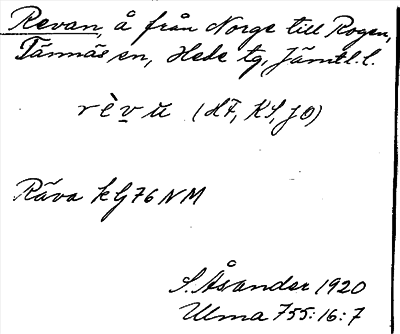 Revan, å från Norge till Rogen,
Tännäs sn, Hede tg, Jämtl. l.
rèvu (HF, KS, JO)
Räva kG76 NM
S. Åsander 1920
Ulma 755:16:7